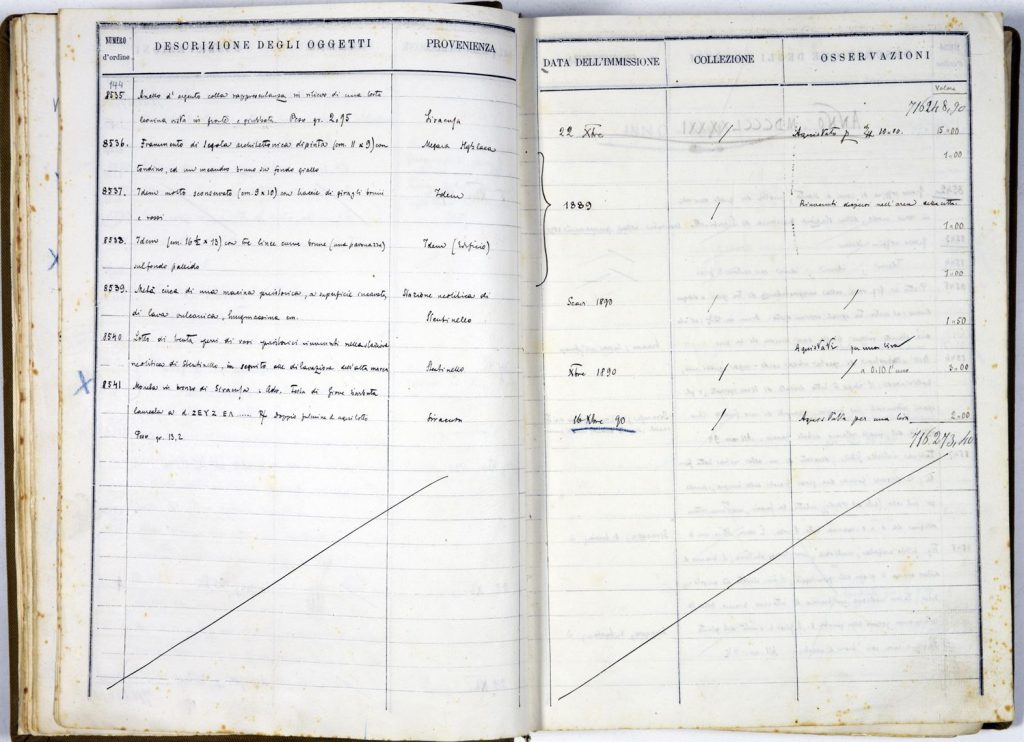 NUMERO d'ordine
DESCRIZIONE DEGLI OGGETTI
PROVENIENZA
DATA DELL'IMMISSIONE
COLLEZIONE
OSSERVAZIONI
Valore
144
716248,90
8535 Anello d'argento colla rappresentanza in rilievo di una testa
leonina vista in fronte e giubbata Peso gr. 2,95 Siracusa 22 Xbre / Aquistato p 10.00. 5.00
8536. Frammento di tegola architettonica dipinta (cm. 11 x 9) con Megara Hyblaea 1.00
tondino, ed un meandro bruno su fondo giallo
8537. Idem molto sconservato (cm. 9 x 10) con traccie di bruni Idem 1889 / Rinvenuti dispersi nell'area della città.
e rossi 1.00
8538. Idem (cm. 16 ½ x 13) con tre linee curve brune (una paonazza) Idem (Edificio)
sul fondo pallido 1.00
8539. Metà circa di una macina preistorica, a superficie incavata, Stazione neolitica di Scavi 1890 / /
di lava vulcanica, lunga cm. Stentinello 1.50
8540 Lotto di trenta pezzi di vasi preistorici rinvenuti nella stazione Aquistati per una lira
neolitica di Stentinello, in seguito alle dilavazione dell'alta marea Stentinello Xbre 1890 / / a 0.10 l'uno 3.00
8541. Moneta in bronzo di Siracusa. Adr. Testa di Giove barbata
laureata a d ΖΕΥΣ ΕΛ ...... Rf Doppio fulmine ed aquilotto Siracusa 16 Xbre 90 / Aquistata per una lira 2.00
Peso gr. 13,2 716273,40